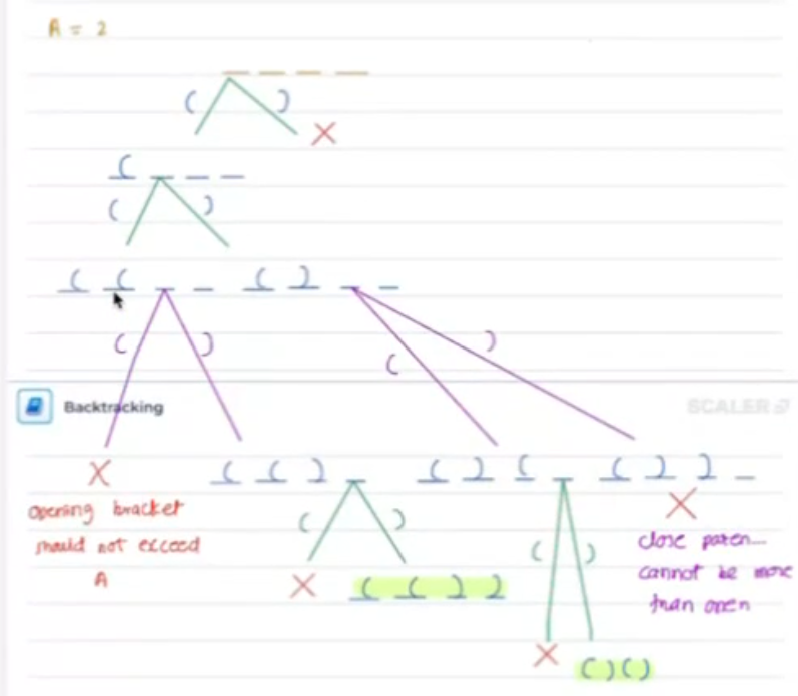 A = 2
_ _ _ _
( )
X
( _ _ _
( )
( ( _ _ ( ) _ _
( ) ( )
Backtracking
SCALER
X ( ( ) _ ( ) ( _ ( ) ) _
opening bracket
should not exceed
A
X
close paren...
cannot be more
than open
( ) ( )
X ( ( ) )
X ( ) ( )